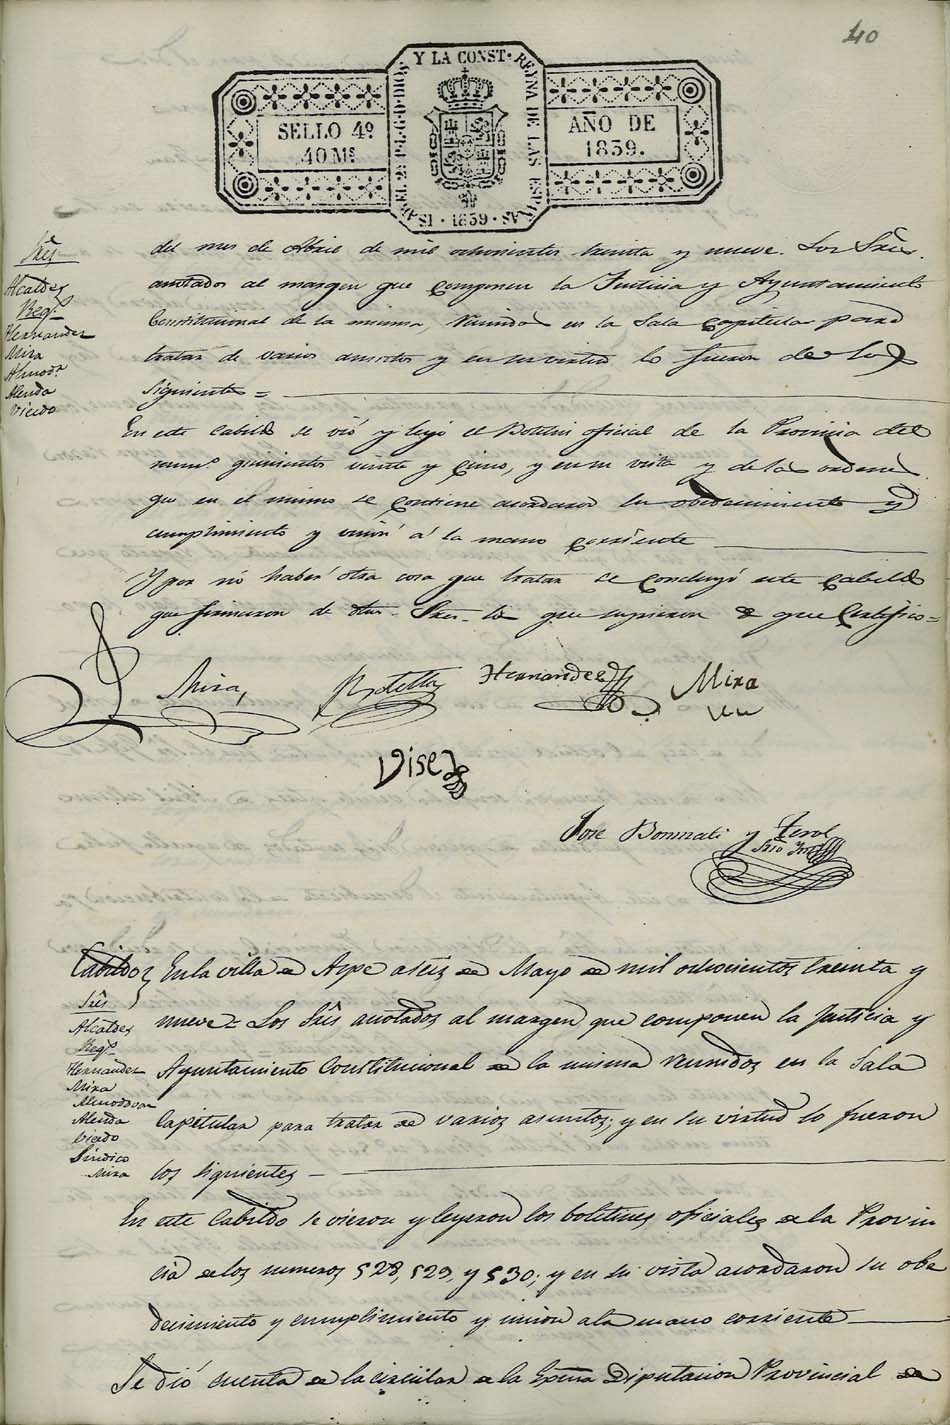 40
ISABEL 2ª P.L.G.D.DIOS Y LA CONST. REYNA DE LAS ESPAÑAS. 1839.
SELLO 4º
40 Ms
AÑO DE
1839.
Sres
Alcaldes
Regs
Hernandez
Mira
Almodr
Alenda
Vicedo
del mes de Abril de mil ochocientos treinta y nueve. Los Sres
anotados al margen que componen la Justicia y Ayuntamiento
Constitucional de la misma, reunidos en la Sala capitular para
tratar de varios asuntos y en su virtud lo fueron de los
siguientes =
En este cabildo se vió y leyó el Boletin oficial de la Provincia del
numo quinientos veinte y cinco, y en su vista y de las ordenes
que en el mismo se contiene acordaron su obedecimiento y
cumplimiento y union á la mano corriente
Y por nó haber otra cosa que tratar se concluyó este cabildo
que firmaron de dhos Sres los que supieron de que Certifico =
Mira,
Botella
Hernandez
Mira
Vised
Jose Bonmati y Terol
Srio
Cabildo
Sres
Alcaldes
Regs
Hernandez
Mira
Almodovar
Alenda
Vicedo
Sindico
Mira
En la villa de Aspe a seis de Mayo de mil ochocientos treinta y
nueve = Los Sres anotados al margen que componen la Justicia y
Ayuntamiento Constitucional de la misma reunidos en la Sala
Capitular para tratar de varios asuntos; y en su virtud lo fueron
los siguientes
En este Cabildo se vieron y leyeron los boletines oficiales de la Provin
cia de los numeros 528, 529, y 530; y en su vista acordaron su obe
decimiento y cumplimiento y union a la mano corriente
Se dió cuenta de la circular de la Exma Diputacion Provincial de